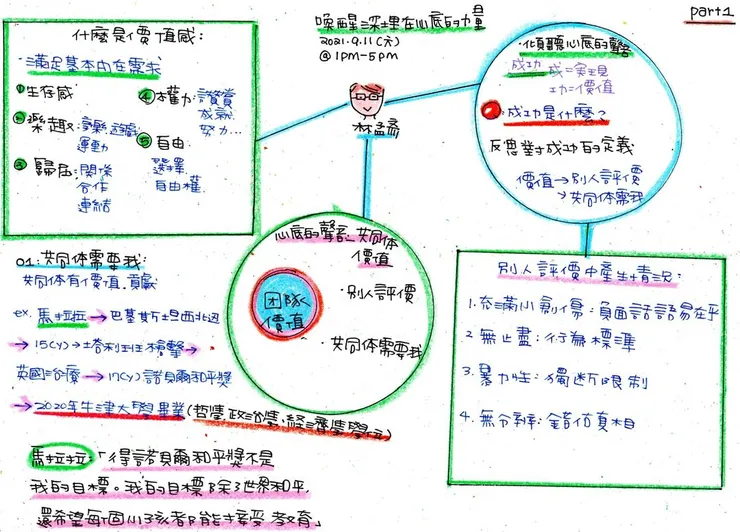 part1
喚醒深埋在心底的力量
2021.9.11(六)
@1PM-5PM
林孟希
什麼是價值感:
·滿足基本內在需求
①生存感
②樂趣:音樂 遊戲
運動
③歸屬:關係
合作
連結
④權力:讚賞
成就
努力…
⑤自由
選擇
自由權
·傾聽心底的聲音
成功 成=実現
工力=價值
·成功是什麼?
反思對於成功的定義
價值→別人評價
→共同体需我
心底的聲音、共同体
價值
團隊
價值
·別人評價
·共同体需要我
別人評價中產生情況:
1.充滿小創傷:負面話語易在乎
2 無止盡:行為標準
3.暴力性:獨断限制
4.無分辨:
01.共同体需要我:
共同体有價值.貢獻
ex. 馬拉拉→巴基斯坦西北边
→15(y)→塔利班槍擊→
英國治療→17(y)諾貝爾和平獎
→2020年牛津大學畢業(哲學,政治學,經濟學學位)
馬拉拉:「得諾貝爾和平獎不是
我的目標。我的目標除了世界和平,
還希望每個小孩者都能接受教育」